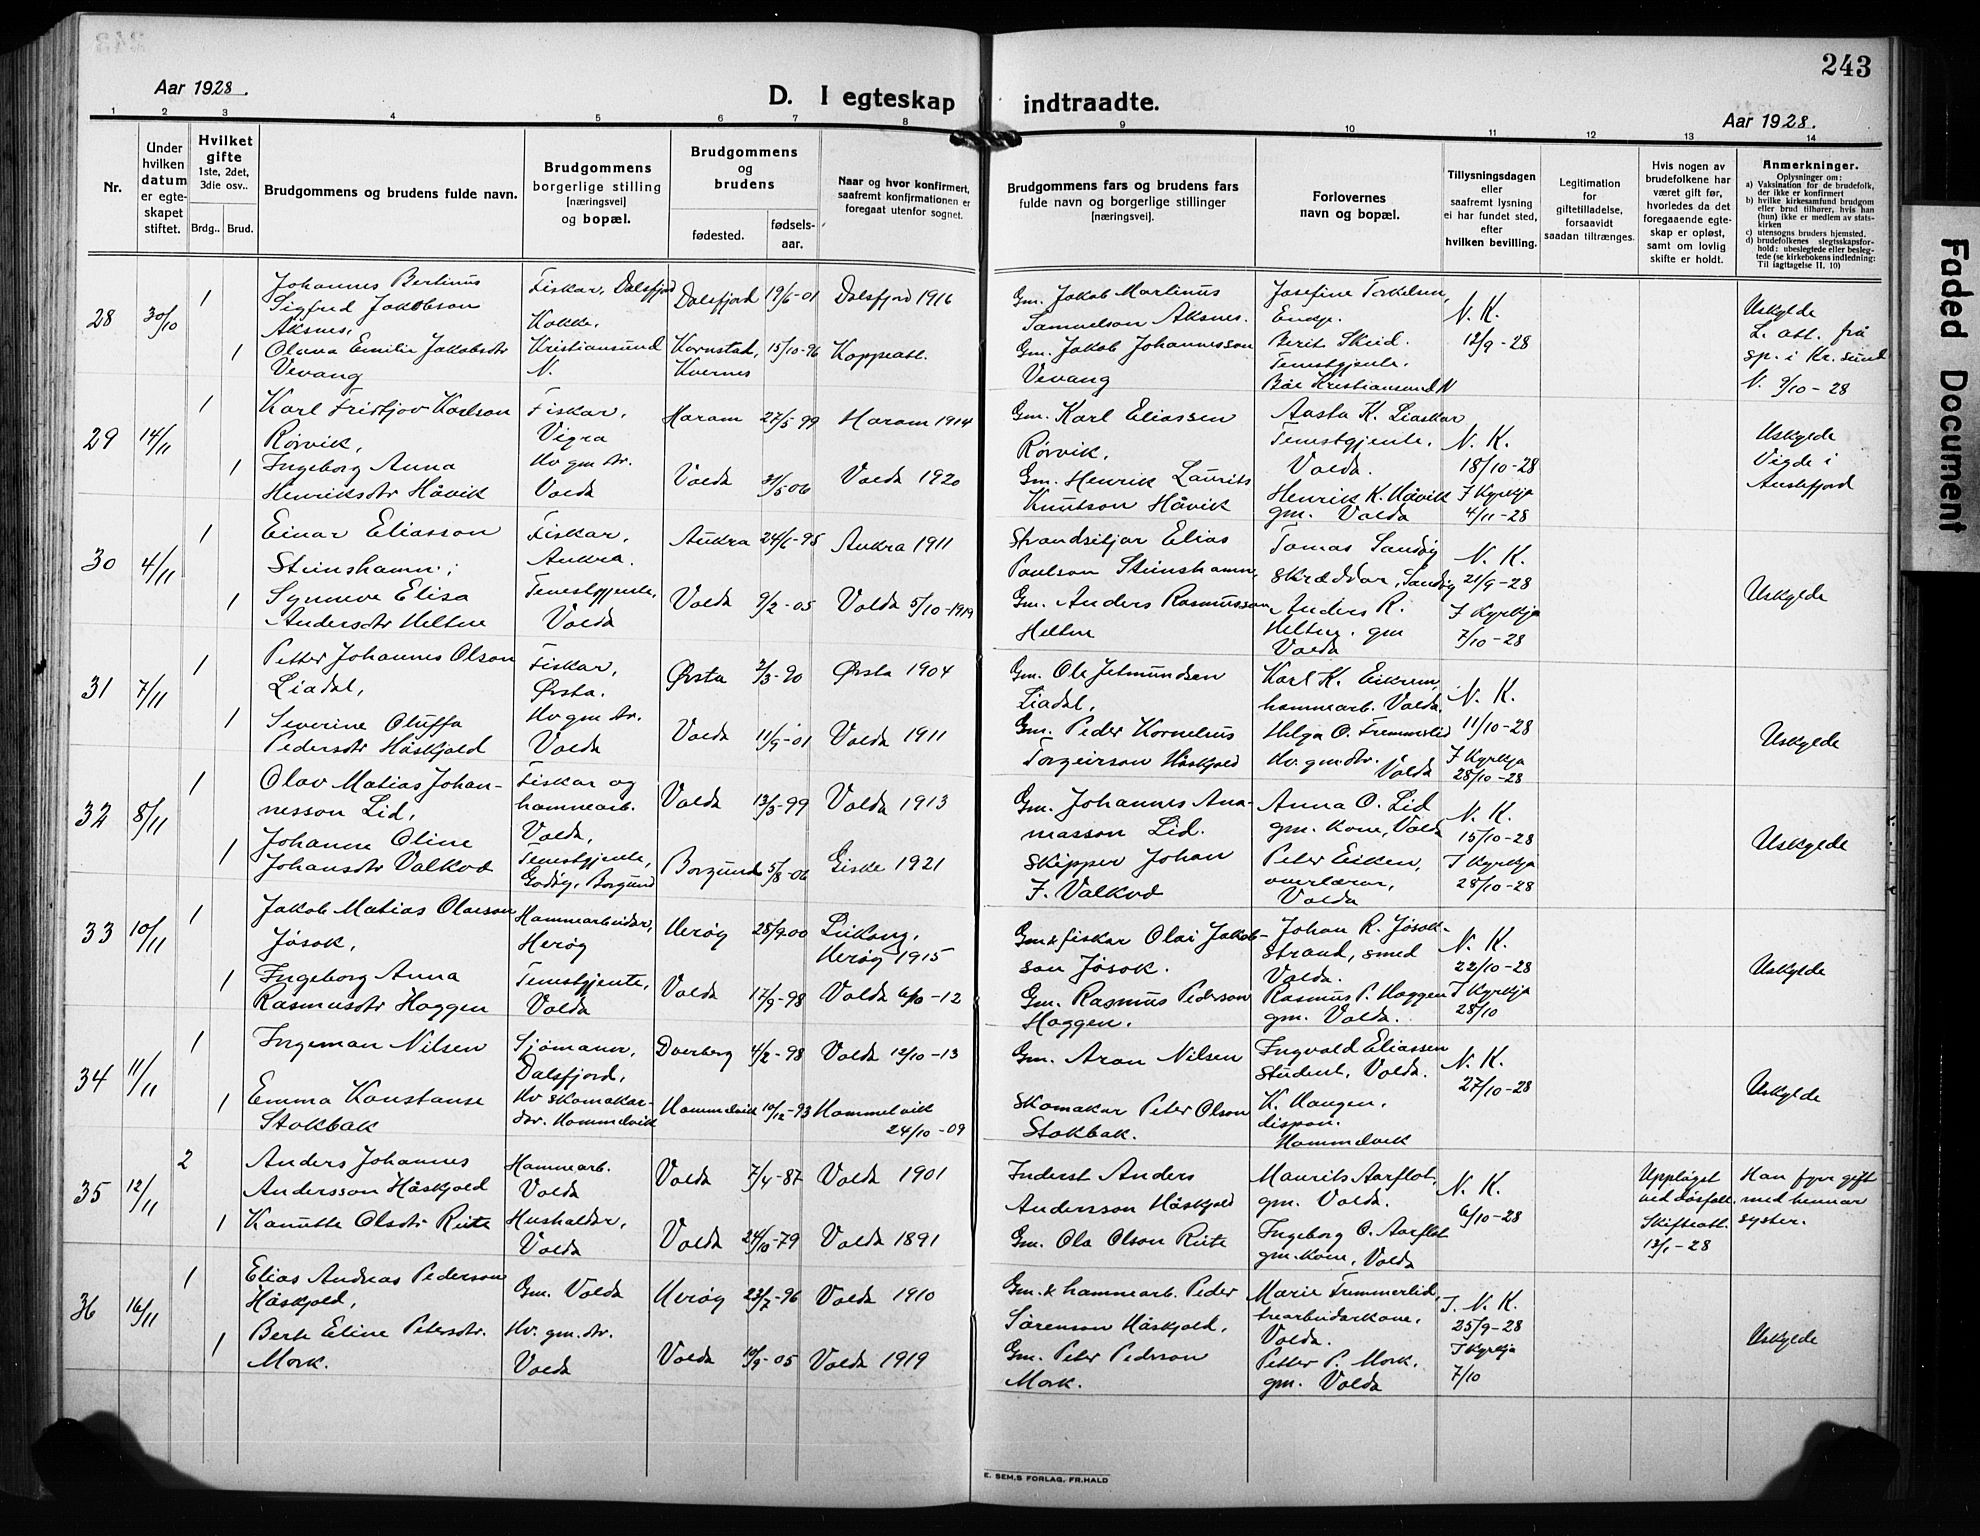 243
Aar 1928.
D. I egteskap indtraadte.
Aar 1928.
1 2 3 4 5 6 7 8 9 10 11 12 13 14
Nr.
Under hvilken datum er egteskapet stiftet.
Hvilket gifte 1ste, 2det, 3die osv..
Brdg.. Brud.
Brudgommens og brudens fulde navn.
Brudgommens borgerlige stilling [næringsvei] og bopæl.
Brudgommens og brudens
fødested. fødselsaar.
Naar og hvor konfirmert, saafremt konfirmationen er foregaat utenfor sognet.
Brudgommens fars og brudens fars fulde navn og borgerlige stillinger [næringsvei].
Forlovernes navn og bopæl.
Tillysningsdagen eller saafremt lysning ei har fundet sted, efter hvilken bevilling.
Legitimation for giftetilladelse, forsaavidt saadan tiltrænges.
Hvis nogen av brudefolkene har været gift før, hvorledes da det foregaaende egteskap er opløst, samt om lovlig skifte er holdt.
Anmerkninger.
Oplysninger om:
a) Vaksination for de brudefolk, der ikke er konfirmert
b) hvilke kirkesamfund brudgom eller brud tilhører, hvis han (hun) ikke er medlem av statskirken
c) utensogns bruders hjemsted.
d) brudefolkenes slegtsskapsforhold: ubeslegtede eller beslegtede (se kirkebokens indledning: Til iagttagelse II, 10)
28 30/10 1 Johannes Bertinus Sigfred Jakobson Aksnes, Fiskar, Dalsfjord Dalsfjord 19/6-01 Dalsfjord 1916 Gm. Jakob Martinus Samuelson Aksnes. Josefine Torkelsen, Enkje. N. K. 12/9-28
1 Olena Emilie Jakobsdtr Vevang Kokke, Kristiansund N. Kornstad, Kvernes 15/10-96 Gm. Jakob Johannesson Vevang Berit Skeid. Tenestgjente. Kristiansund N Uskylde L. att. frå sp. i Kr.sund N. 9/10-28
29 14/11 1 Karl Fridtjov Karlson Rørvik, Fiskar, Vigra Haram 27/5-99 Haram 1914 Gm. Karl Eliassen Rørvik, Aasta K. Liaskar Tenestgjente. Volda. N. K. 18/10-28
1 Ingeborg Anna Henriksdtr Håvik Hv gm dr. Volda Volda 31/5 06 Volda 1920 Gm. Henrik Laurits Knutson Håvik Henrik K. Håvik gm. Volda I Kyrkja 4/11-28 Uskylde Vigde i Austefjord
30 4/11 1 Einar Eliasson Steinshamn; Fiskar, Aukra. Aukra 24/6-95 Aukra 1911 Strandsitjar Elias Paulson Steinshamn, Tomas Sandøy skræddar, Sandøy N. K. 21/9-28
1 Synneve Elisa Andersdtr Heltne Tenestgjente, Volda Volda 9/2-05 Volda 5/10-1919 Gm. Anders Rasmusson Heltne Anders R. Heltne. gm Volda I Kyrkja 7/10-28 Uskylde
31 7/11 1 Petter Johannes Olson Liadal, Fiskar, Ørsta. Ørsta 2/3-90 Ørsta 1904 Gm. Ole Jetmundsen Liadal, Karl K. Eikrem, hammearb. Volda. N. K. 11/10-28
1 Severine Oluffa Pedersdtr Håskjold Hv gm dr. Volda Volda 11/9-01 Volda 1911 Gm. Peder Kornelius Torgeirson Håskjold Helga O. Fremmerlid Hv. gm. dtr. Volda I Kyrkja 28/10-28 Uskylde
32 8/11 1 Olav Matias Johannesson Lid, Fiskar og hammearb. Volda, Volda 13/3-99 Volda 1913 Gm. Johannes Anamasson Lid. Anna O. Lid gm. kone, Volda N. K. 15/10-28
1 Johanne Oline Johansdtr Valkvæ Tenestgjente, Godøy, Borgund Borgund 5/8-06 Giske 1921 Skipper Johan J. Valkvæ Peter Eiken, overlærar, Volda I Kyrkja 28/10-28 Uskylde
33 10/11 1 Jakob Matias Olaison Jøsok, Hammearbeidar, Herøy Herøy 28/9 00 Leikong, Herøy 1915 Gm & fiskar Olai Jakobson Jøsok. Johan R. Jøsok-Strand, smed Volda. N. K. 22/10-28
1 Ingeborg Anna Rasmusdtr Haggen Tenestgjente, Volda Volda 17/9-98 Volda 6/10-12 Gm. Rasmus Pederson Haggen. Rasmus P. Haggen gm. Volda. I Kyrkja 28/10 Uskylde
34 11/11 1 Ingeman Nilsen Sjømann, Dalsfjord, Dverberg 4/2-98 Volda 12/10-13 Gm. Aron Nilsen Ingvald Eliassen Student, Volda. N. K. 27/10-28
1 Emma Konstanse Stokbak Hv skomakardtr. Hommelvik Hommelvik 10/12-93 Hommelvik 24/10-09 Skomakar Peter Olson Stokbak. K. Haugen, dispon. Hommelvik Uskylde
35 12/11 2 Anders Johannes Andersson Håskjold Hammearb. Volda Volda 7/4-87 Volda 1901 Inderst Anders Andersson Håskjold Maurits Aarflot, gm. Volda. N. K. 6/10-28 Upplöyst ved dødsfall. Skifteatt. 13/1-28 Han fyrr gift med hennar syster.
1 Kanutte Olsdtr Rute Hushaldar, Volda Volda 24/10-79 Volda 1891 Gm. Ola Olson Rute Ingeborg O. Aarflot gm. kone, Volda
36 16/11 1 Elias Andreas Pederson Håskjold, Gm. Volda Herøy 23/7-96 Volda 1910 Gm. & hammearb. Peder Sørenson Håskjold, Marie Fremmerlid, trearbeidarkone, Volda. I. N. K. 25/9-28
1 Berte Eline Petersdtr. Mork. Hv. gm. dr. Volda Volda 10/9-05 Volda 1919 Gm. Peter Pederson Mork. Petter P. Mork, gm. Volda I Kyrkja 7/10 Uskylde
E. SEM,S FORLAG, FR.HALD
Faded Document